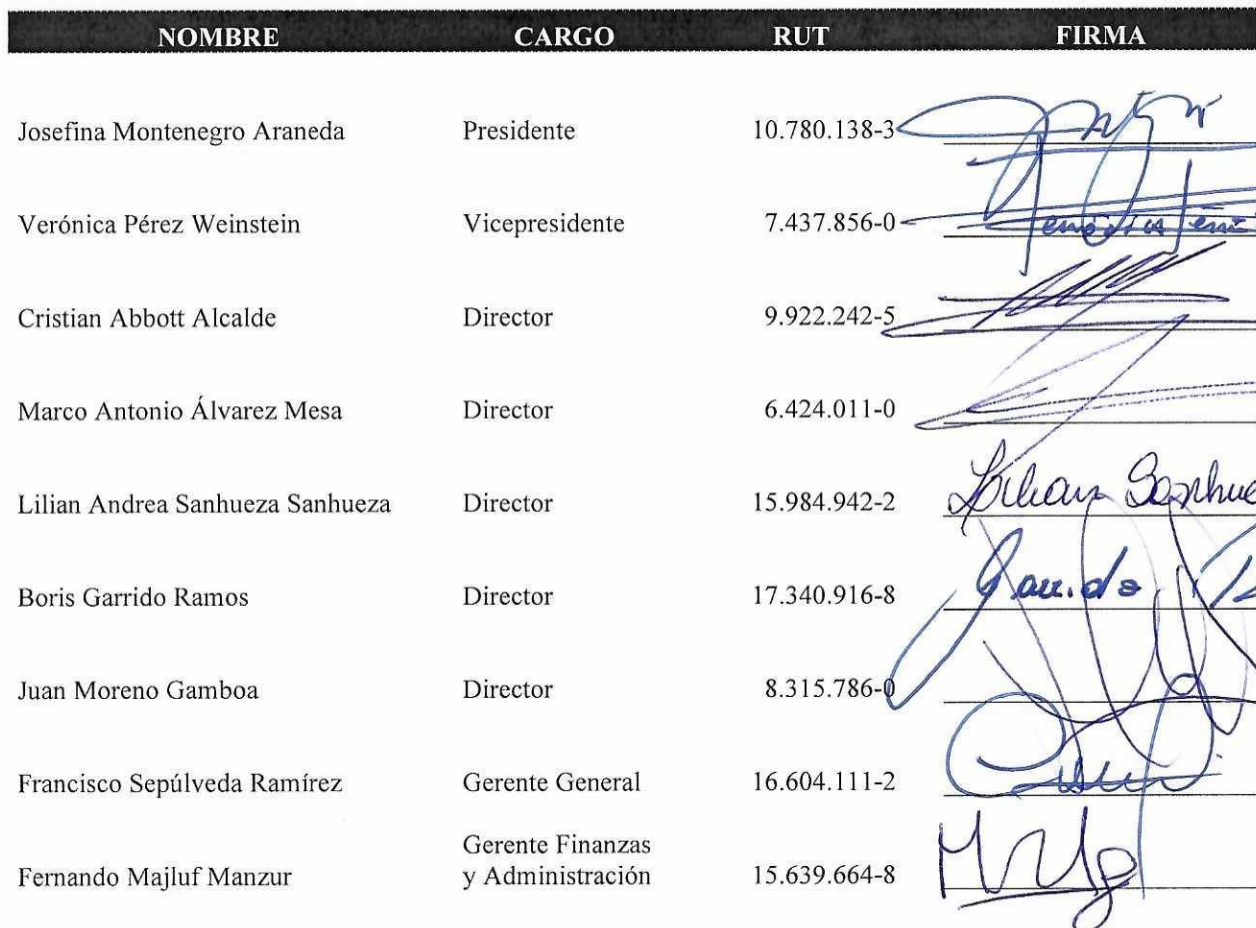 NOMBRE CARGO RUT FIRMA
Josefina Montenegro Araneda Presidente 10.780.138-3
Verónica Pérez Weinstein Vicepresidente 7.437.856-0
Cristian Abbott Alcalde Director 9.922.242-5
Marco Antonio Álvarez Mesa Director 6.424.011-0
Lilian Andrea Sanhueza Sanhueza Director 15.984.942-2 Lilian Sanhue
Boris Garrido Ramos Director 17.340.916-8 Garrido
Juan Moreno Gamboa Director 8.315.786-0
Francisco Sepúlveda Ramírez Gerente General 16.604.111-2
Gerente Finanzas
Fernando Majluf Manzur y Administración 15.639.664-8